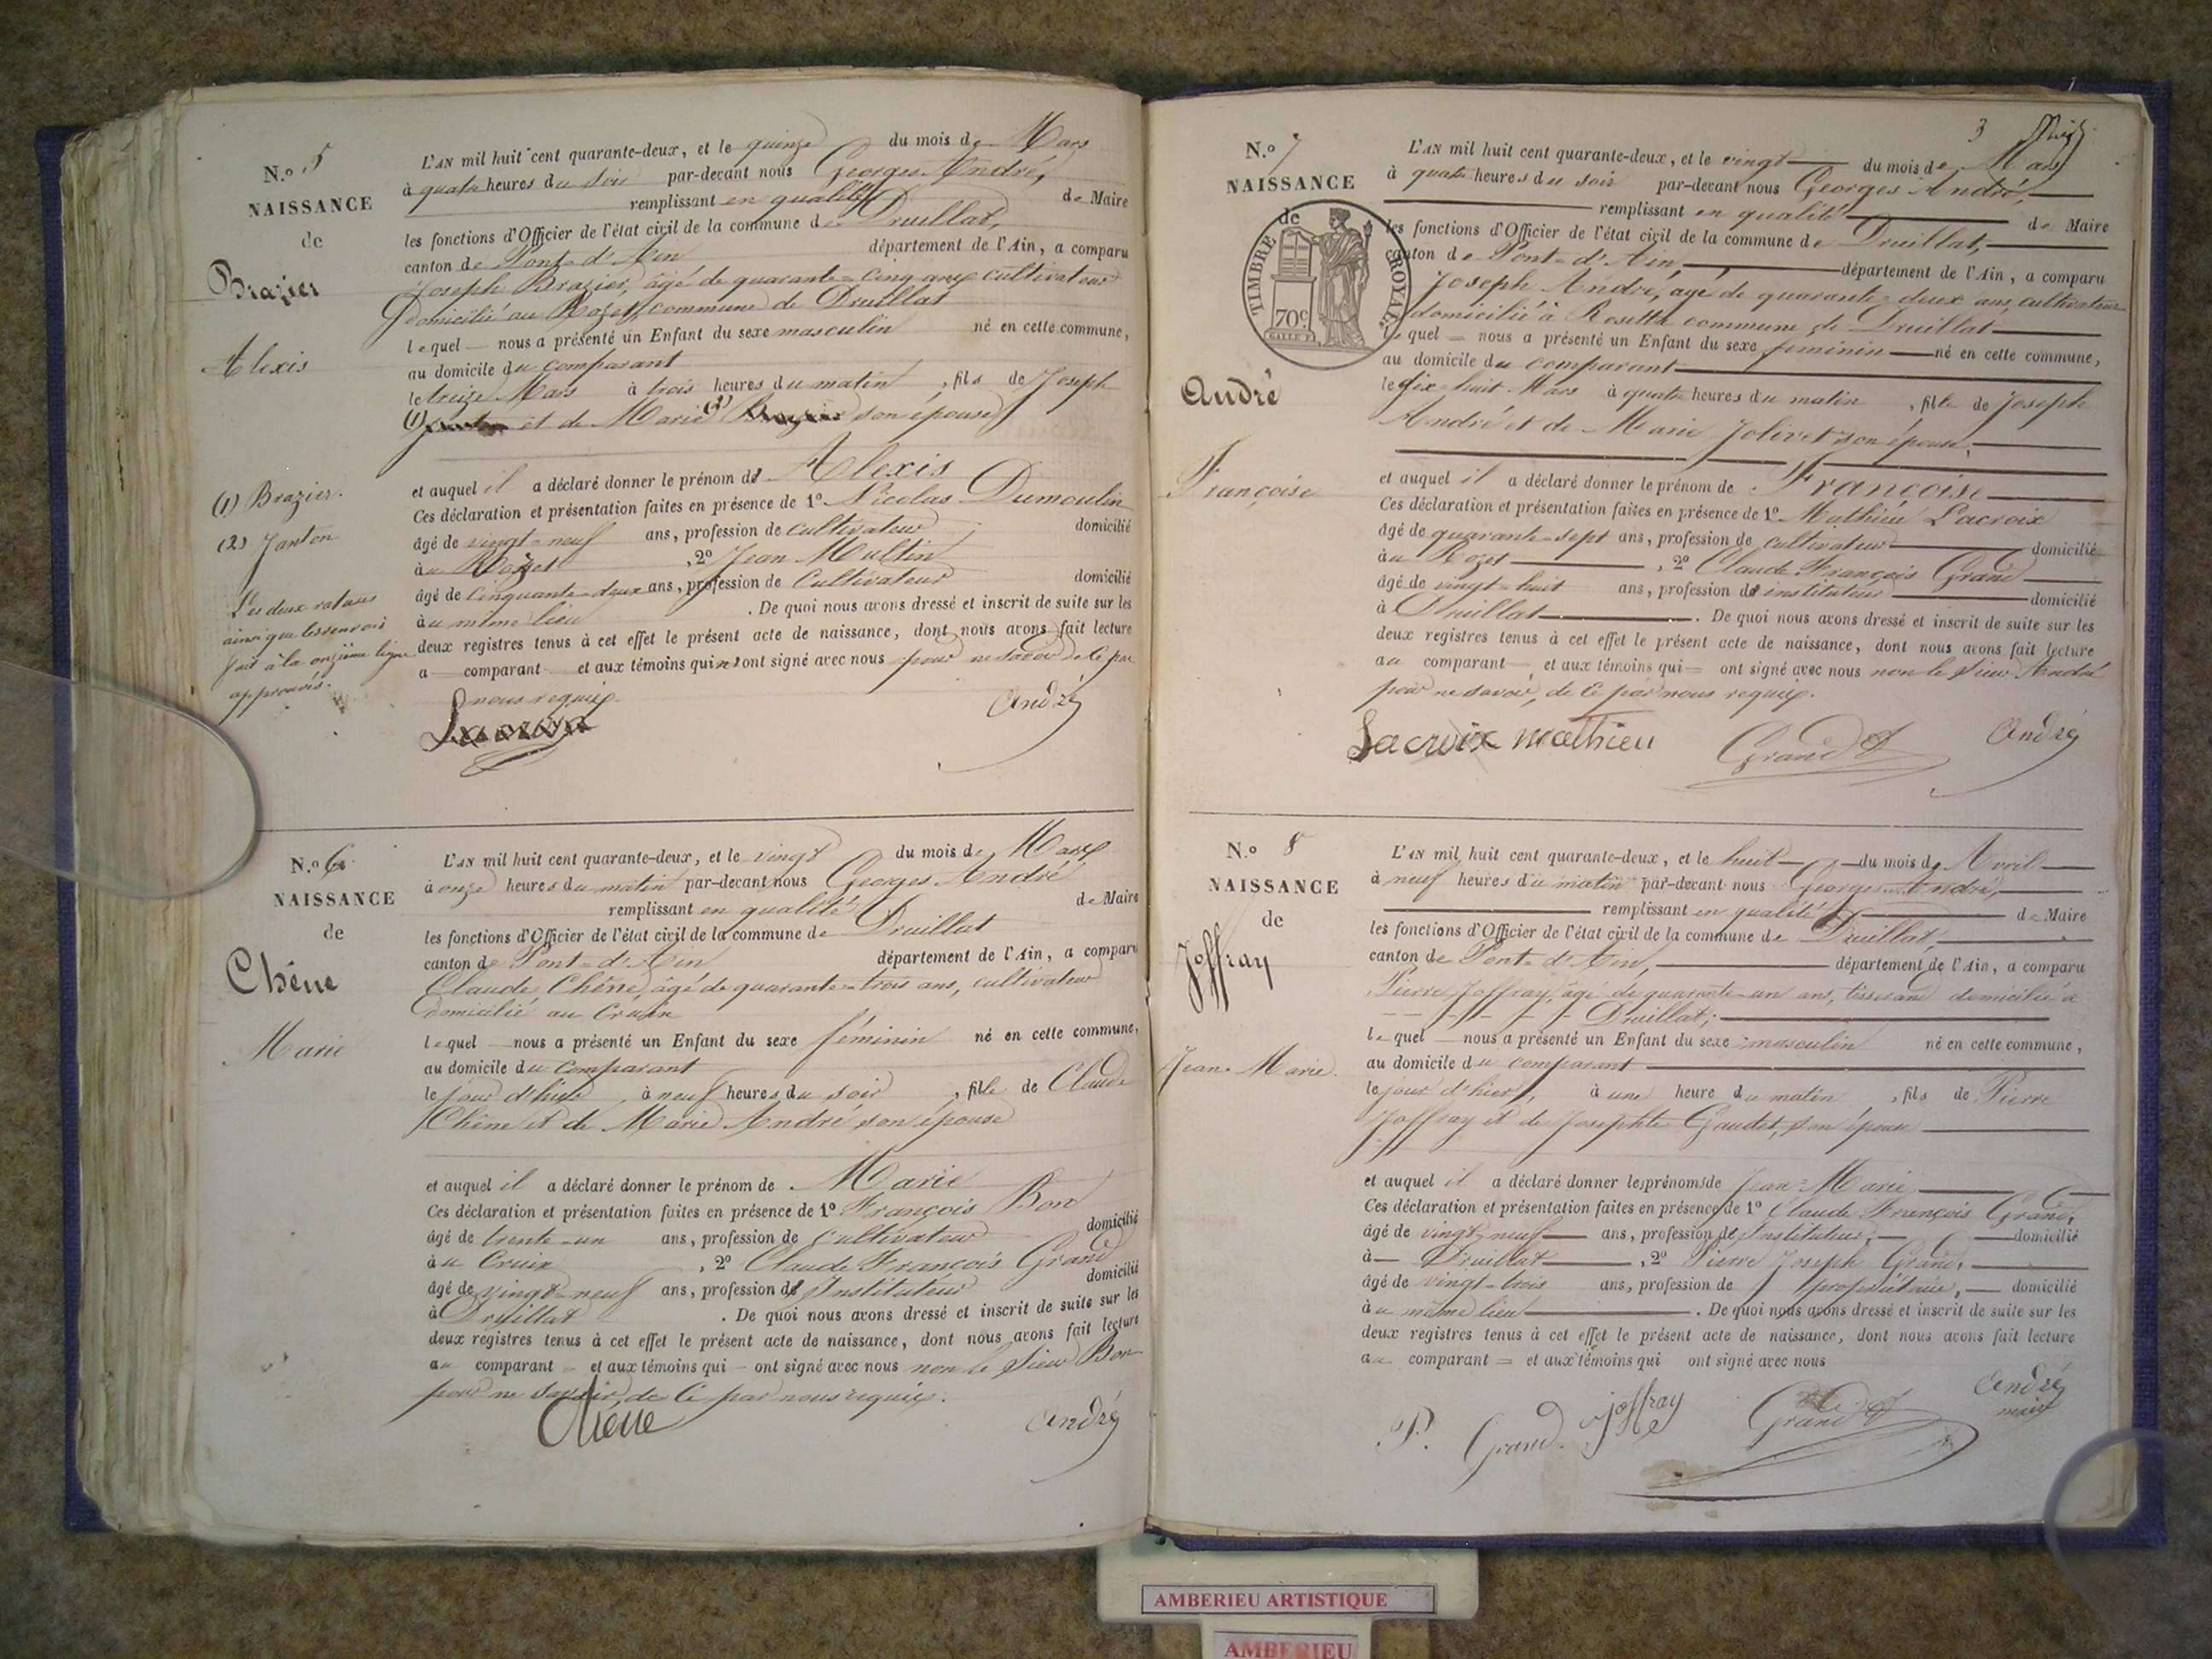 N.o 5
NAISSANCE
de
Brazier
Alexis
(1) Brazier.
(2) Janton
Les deux ratures
ainsi que les renvois
fait à la onzième ligne
approuvés.
L'AN mil huit cent quarante-deux, et le quinze du mois de Mars
à quatre heures du soir par-devant nous Georges André,
remplissant en qualité de Maire
les fonctions d'Officier de l'état civil de la commune de Druillat,
canton de Pont-d'Ain département de l'Ain, a comparu
Joseph Brazier, âgé de quarante-cinq ans cultivateur
domicilié au Rozet, commune de Druillat
lequel nous a présenté un Enfant du sexe masculin né en cette commune,
au domicile du comparant
le treize Mars à trois heures du matin, fils de Joseph
(1) et de Marie (2) son épouse
et auquel il a déclaré donner le prénom de Alexis
Ces déclaration et présentation faites en présence de 1o Nicolas Dumoulin
âgé de vingt-neuf ans, profession de cultivateur domicilié
au Rozet, 2o Jean Multin
âgé de cinquante-deux ans, profession de Cultivateur domicilié
au même lieu. De quoi nous avons dressé et inscrit de suite sur les
deux registres tenus à cet effet le présent acte de naissance, dont nous avons fait lecture
a comparant et aux témoins qui n'ont signé avec nous pour ne savoir de ce par
nous requis.
André
N.o 6
NAISSANCE
de
Chêne
Marie
L'AN mil huit cent quarante-deux, et le vingt du mois de Mars
à onze heures du matin par-devant nous Georges André
remplissant en qualité de Maire
les fonctions d'Officier de l'état civil de la commune de Druillat
canton de Pont-d'Ain département de l'Ain, a comparu
Claude Chêne, âgé de quarante-trois ans, cultivateur
domicilié au Cruix
lequel nous a présenté un Enfant du sexe féminin né en cette commune,
au domicile du comparant
le jour d'hier, à neuf heures du soir, fille de Claude
Chêne et de Marie André son épouse
et auquel il a déclaré donner le prénom de Marie
Ces déclaration et présentation faites en présence de 1o François Bon
âgé de trente-un ans, profession de Cultivateur domicilié
au Cruix, 2o Claude François Grand
âgé de vingt-neuf ans, profession d'Instituteur domicilié
à Druillat. De quoi nous avons dressé et inscrit de suite sur les
deux registres tenus à cet effet le présent acte de naissance, dont nous avons fait lecture
au comparant et aux témoins qui ont signé avec nous non le sieur Bon
pour ne savoir, de ce par nous requis.
Chene André
3
N.o 7
NAISSANCE
de
TIMBRE ROYAL
70c
André
Françoise
L'AN mil huit cent quarante-deux, et le vingt du mois de Mars
à quatre heures du soir par-devant nous Georges André,
remplissant en qualité de Maire
les fonctions d'Officier de l'état civil de la commune de Druillat,
canton de Pont-d'Ain, département de l'Ain, a comparu
Joseph André, âgé de quarante-deux ans, cultivateur
domicilié à Rosette commune de Druillat
lequel nous a présenté un Enfant du sexe féminin né en cette commune,
au domicile du comparant
le dix-huit Mars à quatre heures du matin, fille de Joseph
André et de Marie Jolivet son épouse,
et auquel il a déclaré donner le prénom de Françoise
Ces déclaration et présentation faites en présence de 1o Mathieu Lacroix
âgé de quarante-sept ans, profession de cultivateur domicilié
au Rozet, 2o Claude François Grand
âgé de vingt-huit ans, profession d'instituteur domicilié
à Druillat. De quoi nous avons dressé et inscrit de suite sur les
deux registres tenus à cet effet le présent acte de naissance, dont nous avons fait lecture
au comparant, et aux témoins qui ont signé avec nous non le sieur André
pour ne savoir, de ce par nous requis.
Lacroix mathieu Grand André
N.o 8
NAISSANCE
de
Joffray
Jean-Marie.
L'AN mil huit cent quarante-deux, et le huit du mois d'Avril
à neuf heures du matin par-devant nous Georges André,
remplissant en qualité de Maire
les fonctions d'Officier de l'état civil de la commune de Druillat,
canton de Pont-d'Ain, département de l'Ain, a comparu
Pierre Joffray, âgé de quarante-un ans, tisserand domicilié à
Druillat;
lequel nous a présenté un Enfant du sexe masculin né en cette commune,
au domicile du comparant
le jour d'hier, à une heure du matin, fils de Pierre
Joffray et de Josephte Gaudet, son épouse
et auquel il a déclaré donner les prénoms de Jean-Marie
Ces déclaration et présentation faites en présence de 1o Claude François Grand,
âgé de vingt neuf ans, profession d'Instituteur, domicilié
à Druillat, 2o Pierre Joseph Grand,
âgé de vingt-trois ans, profession de propriétaire, domicilié
au même lieu. De quoi nous avons dressé et inscrit de suite sur les
deux registres tenus à cet effet le présent acte de naissance, dont nous avons fait lecture
au comparant et aux témoins qui ont signé avec nous
P. Grand. joffray Grand André
maire
AMBERIEU ARTISTIQUE
AMBERIEU